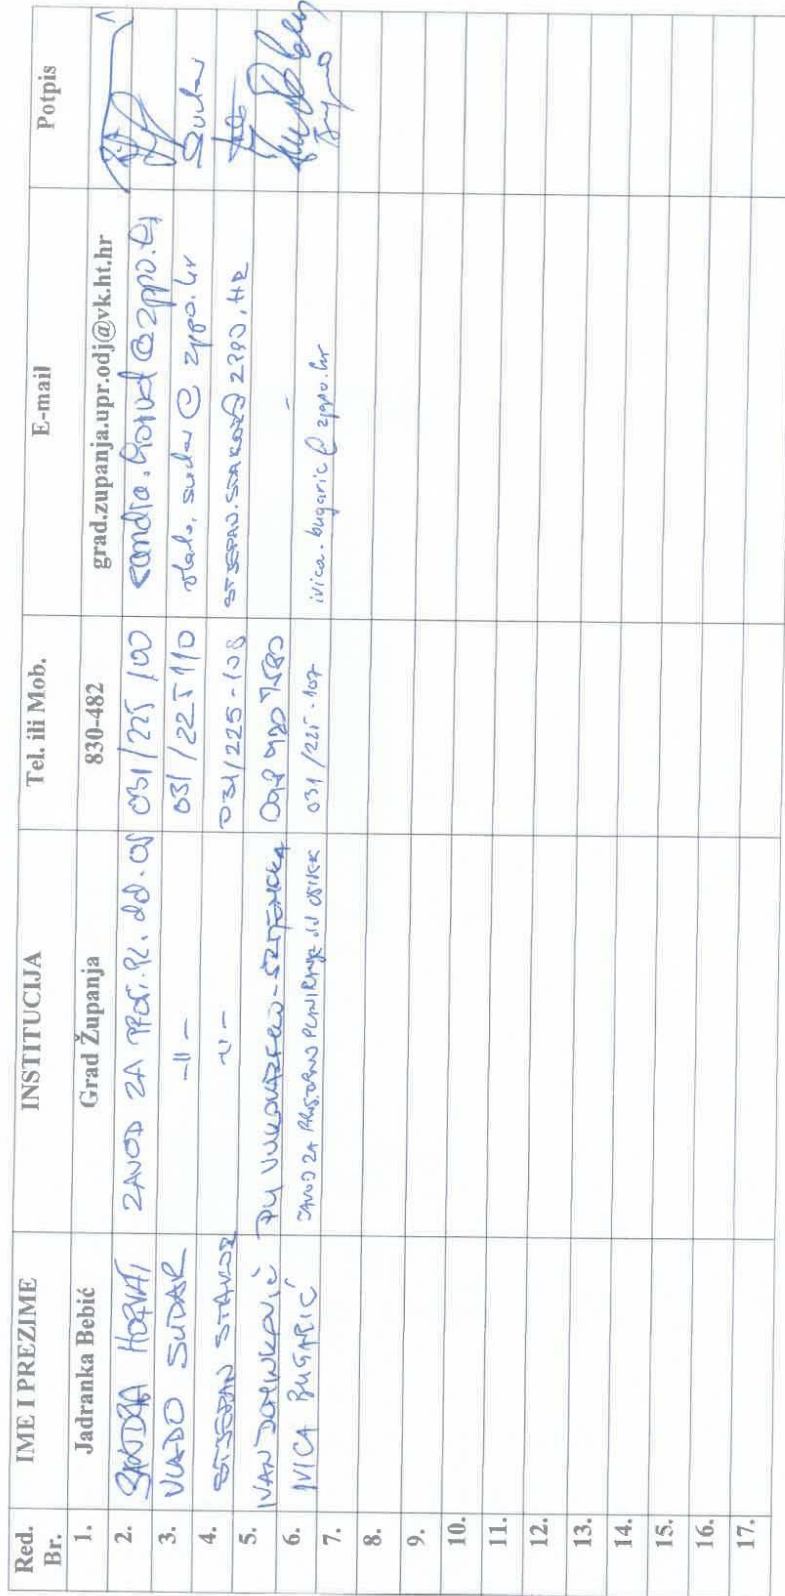 Red. Br. IME I PREZIME INSTITUCIJA Tel. ili Mob. E-mail Potpis
1. Jadranka Bebić Grad Županja 830-482 grad.zupanja.upr.odj@vk.ht.hr
2. SANDRA HORVAT ZAVOD ZA PROST. PL. 031/225 100 sandra.horvat@zppo.hr
3. VLADO SUDAR -11- 031/225 110 vlado.sudar@zppo.hr Sudar
4. STJEPAN STAKOR -11- 031/225-108
5. IVAN DOMINKOVIĆ PU VUKOVARSKO-SRIJEMSKA
6. IVICA BUGARIĆ ZAVOD ZA PROSTORNO PLANIRANJE 031/225-107 ivica.bugaric@zppo.hr
7.
8.
9.
10.
11.
12.
13.
14.
15.
16.
17.